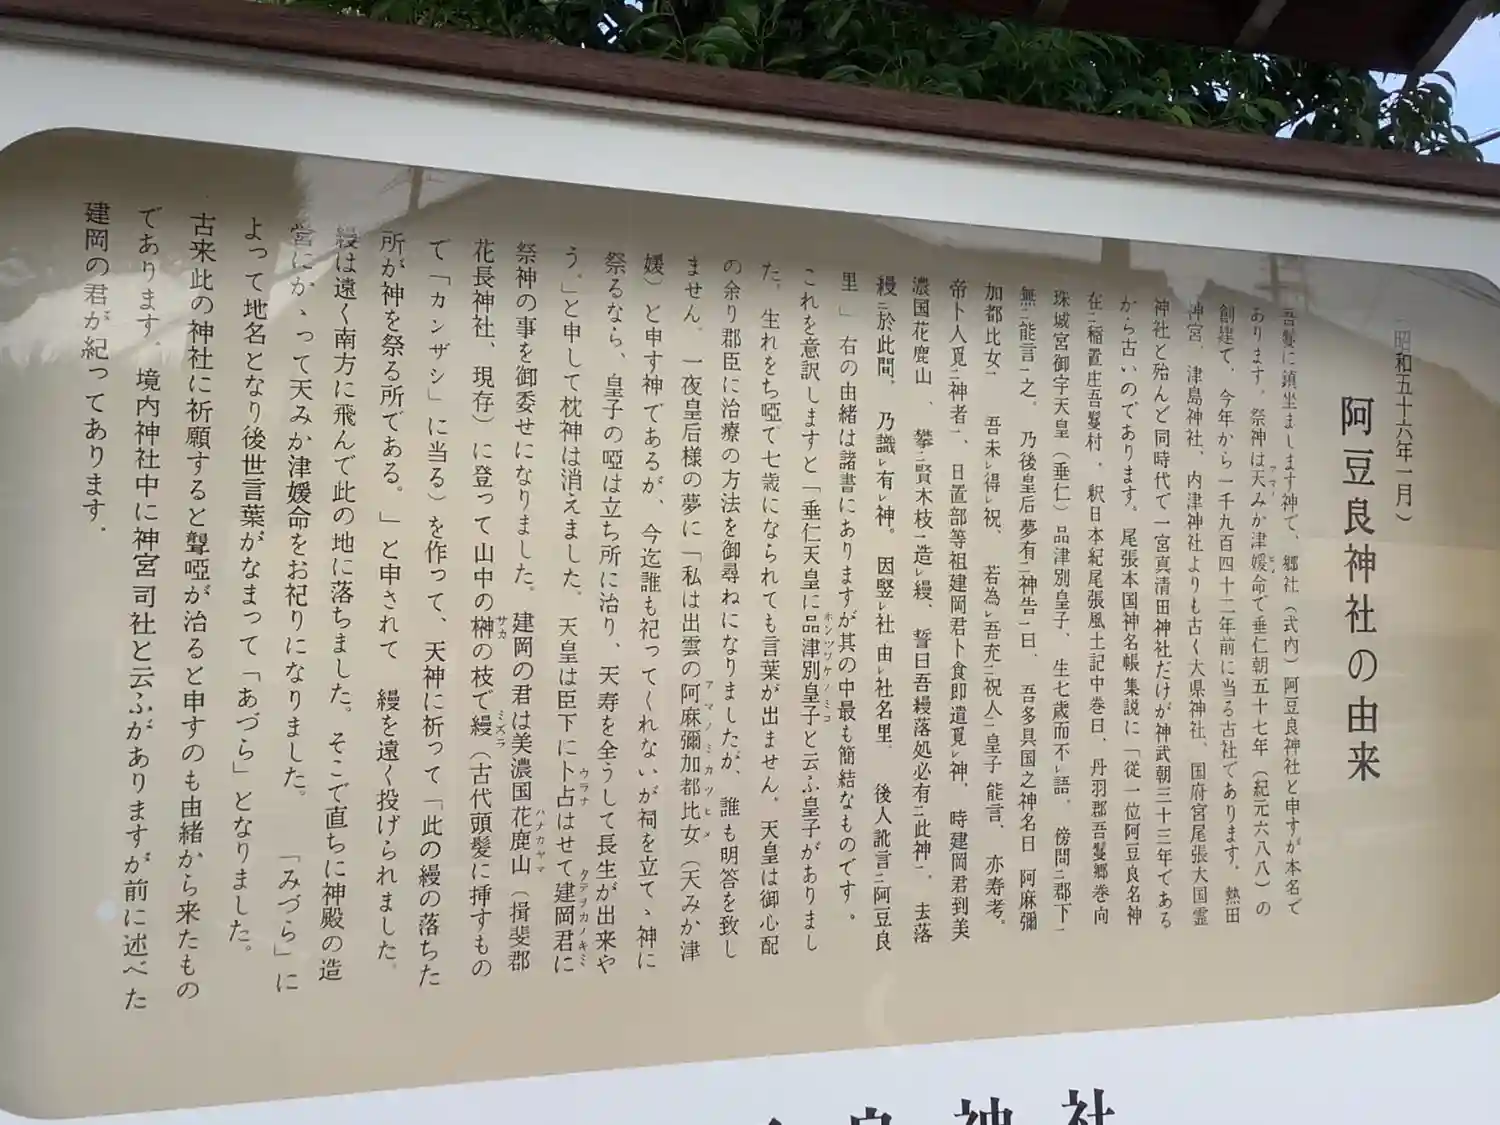 (昭和五十六年一月)
阿豆良神社の由来
吾鬘に鎮坐まします神で、郷社(式内)阿豆良神社と申すが本名で
あります。祭神は天みか津媛命で垂仁朝五十七年(紀元六八八)の
創建で、今年から一千九百四十二年前に当る古社であります。熱田
神宮、津島神社、内津神社よりも古く大県神社、国府宮尾張大国霊
神社と殆んど同時代で一宮真清田神社だけが神武朝三十三年である
から古いのであります。尾張本国神名帳集説に「従一位阿豆良名神
在ニ稲置庄吾鬘村。釈日本紀尾張風土記中巻曰、丹羽郡吾鬘郷巻向
珠城宮御宇天皇(垂仁)品津別皇子、生七歳而不レ語。傍問ニ郡下一
無ニ能言一之。乃後皇后夢有ニ神告一曰、吾多具国之神名曰 阿麻彌
加都比女一 吾未レ得レ祝、若為レ吾充ニ祝人一皇子能言、亦寿考。
帝卜人覓ニ神者一、日置部等祖建岡君卜食即遣覓レ神、時建岡君到美
濃国花鹿山、攀ニ賢木枝一造レ縵、誓曰吾縵落処必有ニ此神一。去落
縵ニ於此間、乃識レ有レ神。因竪レ社 由レ社名里、後人訛言ニ阿豆良
里」右の由緒は諸書にありますが其の中最も簡結なものです。
これを意訳しますと「垂仁天皇に品津別皇子と云ふ皇子がありまし
た。生れをち啞で七歳になられても言葉が出ません。天皇は御心配
の余り郡臣に治療の方法を御尋ねになりましたが、誰も明答を致し
ません。一夜皇后様の夢に「私は出雲の阿麻彌加都比女(天みか津
媛)と申す神であるが、今迄誰も祀ってくれないが祠を立て、神に
祭るなら、皇子の啞は立ち所に治り、天寿を全うして長生が出来や
う。」と申して枕神は消えました。天皇は臣下に卜占はせて建岡君に
祭神の事を御委せになりました。建岡の君は美濃国花鹿山(揖斐郡
花長神社、現存)に登って山中の榊の枝で縵(古代頭髪に挿すもの
て「カンザシ」に当る)を作って、天神に祈って「此の縵の落ちた
所が神を祭る所である。」と申されて 縵を遠く投げられました。
縵は遠く南方に飛んで此の地に落ちました。そこで直ちに神殿の造
営にかゝって天みか津媛命をお祀りになりました。「みづら」に
よって地名となり後世言葉がなまって「あづら」となりました。
古来此の神社に祈願すると聾啞が治ると申すのも由緒から来たもの
であります。境内神社中に神宮司社と云ふがありますが前に述べた
建岡の君が紀ってあります。
良神社